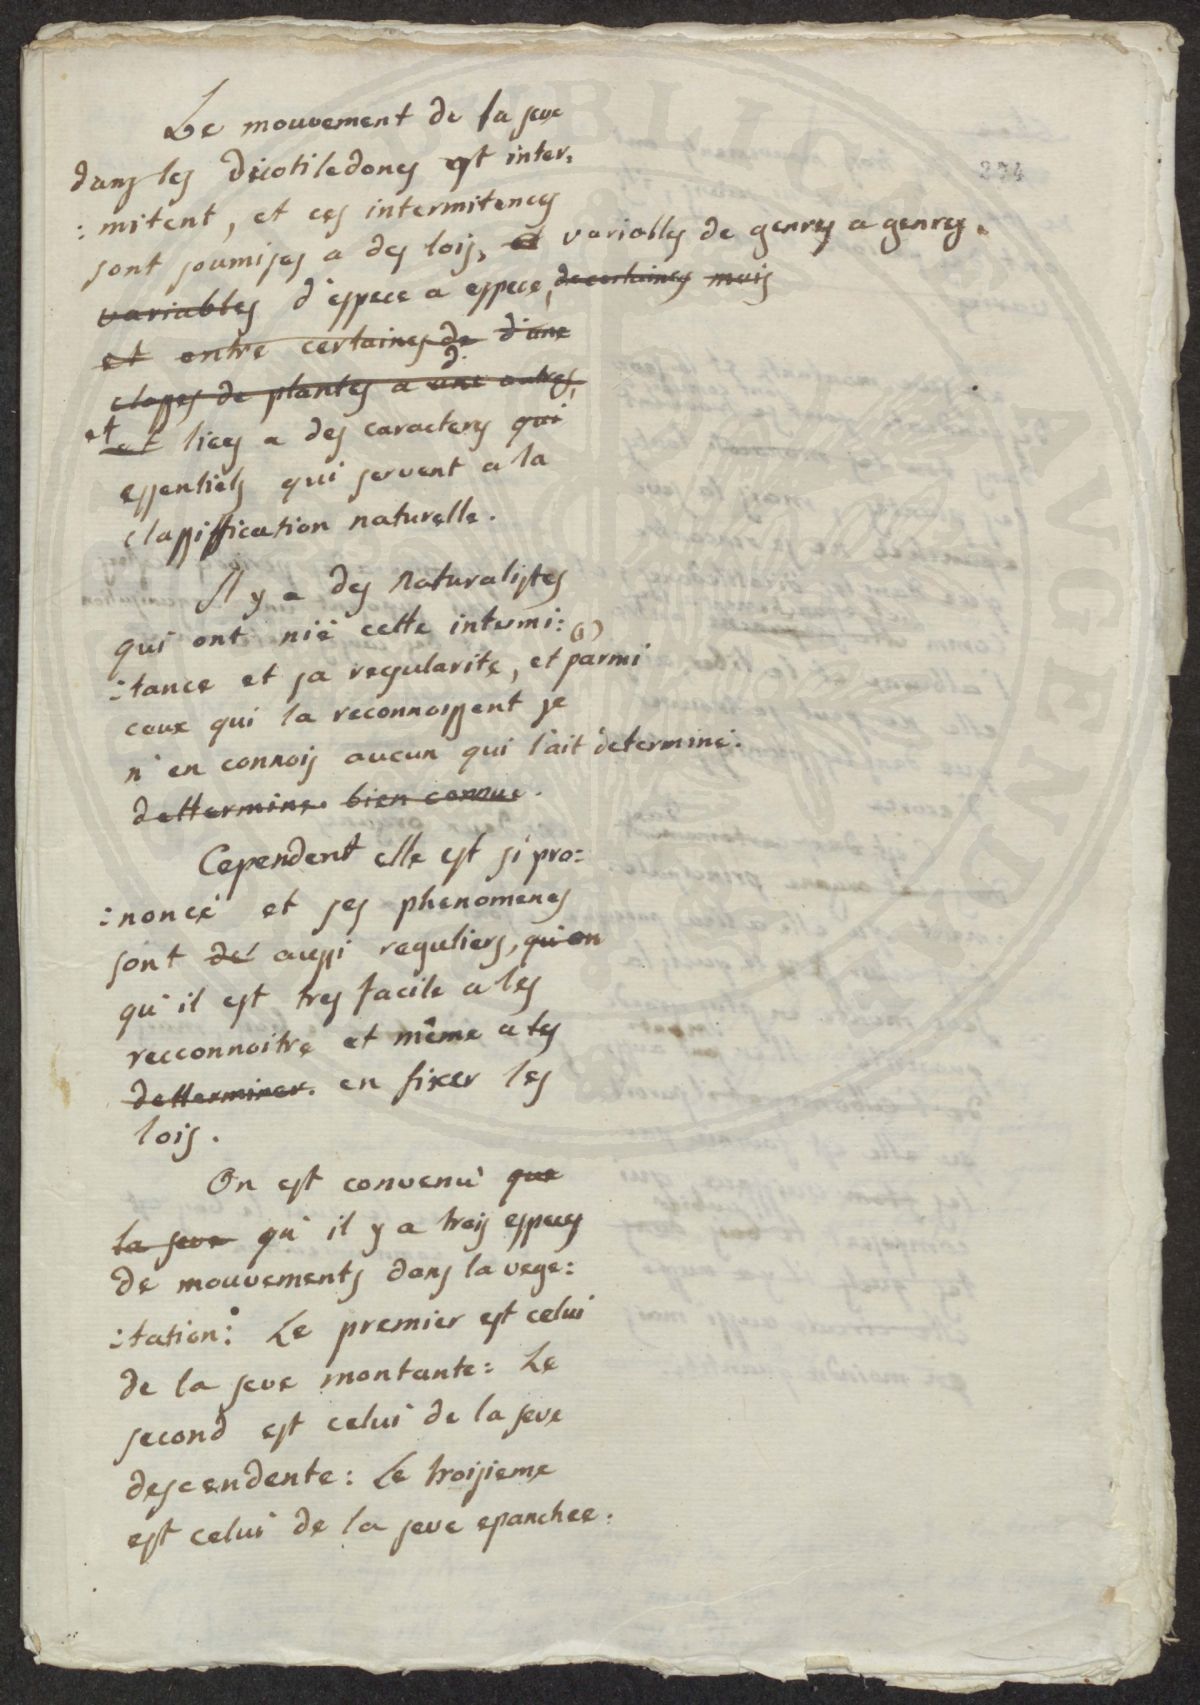 274
Le mouvement de la seve
dans les dicotiledones est inter,
: mitent, et ces intermitences
sont soumises a des lois, et variables de genres a genres.
variables d'espece a espece, de certaines mais
et entre certaines de d'une
d.
classes de plantes a une autres,
et
et liees a des caracteres qui
essentiels qui servent a la
classiffication naturelle.
Il y a des naturalistes
qui ont nié cette intermi:
(1)
:tance et sa regularite, et parmi
ceux qui la reconnoissent je
n'en connois aucun qui l'ait determiné.
dettermine bien connue.
Cependent elle est si pro:
:noncé et ses phenomenes
sont de aussi reguliers, qu'on
qu'il est tres facile a les
recconnoitre et même a les
detterminer. en fixer les
lois.
On est convenu que
la seve qu'il y a trois especes
de mouvements dans la vege:
:tation: Le premier est celui
de la seve montante: Le
second est celui de la seve
descendente: Le troisieme
est celui de la seve epanchee.